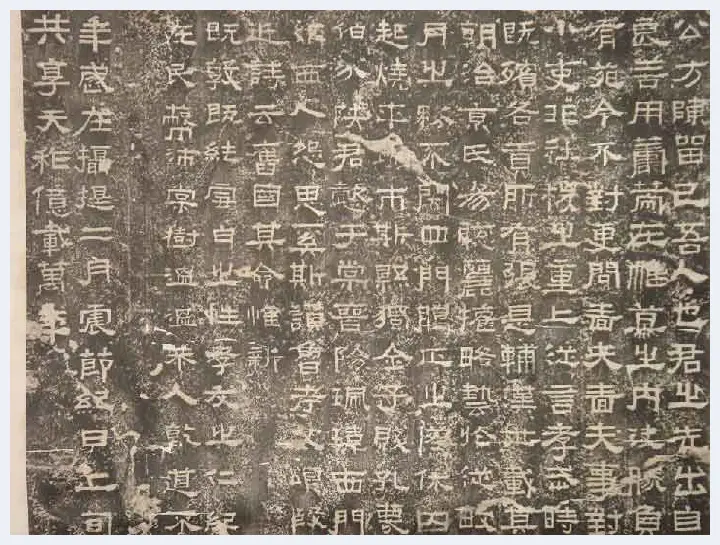 公方陳留己吾人也君之先出自
良善用籌策在帷幕之內決勝負
有苑令不對更問嗇夫嗇夫事對
小吏非社稷之重上從言孝武時
既殯各貢所有張是輔漢世載其
朝治京氏易聰麗權略藝於從畋
月之務不閉四門臘正之際休囚
起燒平城市斯縣獨全子賤孔蔑
伯分陝君懿于棠晉陽珮瑋西門
征西人怨思奚斯讚魯考父頌殷
近詩云舊國其命惟新
既敦既純雪白之性孝友之仁紀
在民蔽沛棠樹溫溫恭人乾道不
年歲在攝提二月震節紀日上旬
共享天祚億載萬年